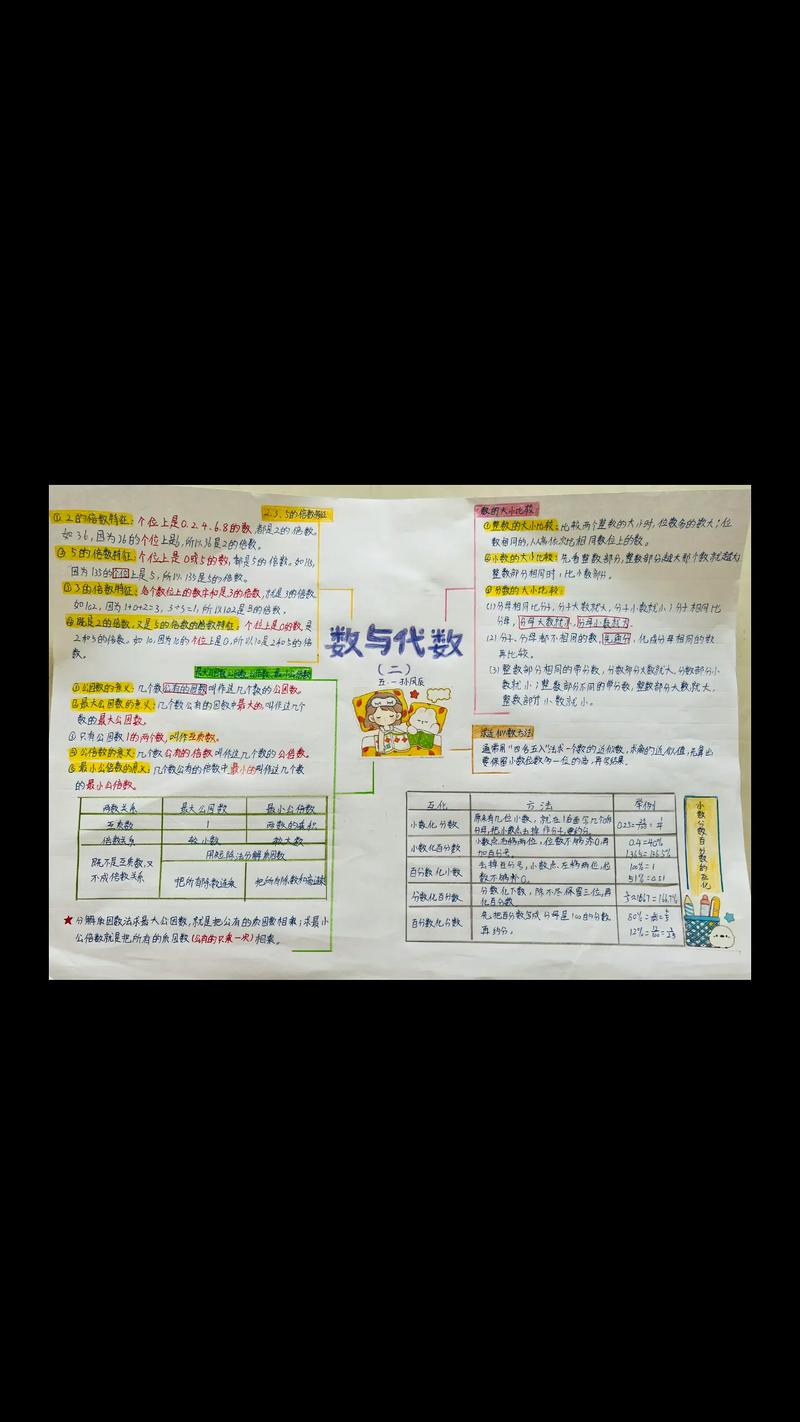 2.3.5的倍数特征
①2的倍数特征:个位上是0.2.4.6.8的数,都是2的倍数。
如36,因为36的个位上是6,所以36是2的倍数。
②5的倍数特征:个位上是0或5的数,都是5的倍数。如135,
因为135的个位上是5,所以135是5的倍数。
③3的倍数特征:各个数位上的数字和是3的倍数,就是3的倍数。
如102,因为1+0+2=3,所以102是3的倍数。
④既是2的倍数,又是5的倍数的倍数特征:个位上是0的数,是
2和5的倍数。如10,因为10的个位上是0,所以10是2和5的倍
数。
最大公因数
最小公倍数
①公因数的意义:几个数公有的因数叫作这几个数的公因数。
②最大公因数的意义:几个数公有的因数中最大的,叫作这几个
数的最大公因数。
③只有公因数1的两个数,叫作互质数。
④公倍数的意义:几个数公有的倍数叫作这几个数的公倍数。
⑤最小公倍数的意义:几个数公有的倍数中,最小的叫作这几个数
的最小公倍数。
两数关系 最大公因数 最小公倍数
互质数 1 两数的乘积
倍数关系 较小数 较大数
既不是互质数,又
不成倍数关系
用短除法分解质因数
把所有除数连乘 把所有除数和商连乘
★分解质因数法求最大公因数,就是把公有的质因数相乘;求最小
公倍数就是把所有的质因数(公有的只乘一次)相乘。
数与代数
(二)
五.一孙风乐
数的大小比较
①整数的大小比较:比较两个整数的大小时,位数多的数大;位
数相同的,从高依次比相同数位上的数。
②小数的大小比较:先看整数部分,整数部分越大那个数就越大
整数部分相同时,比小数部分。
③分数的大小比较:
(1)分母相同比分子,分子大数就大,分子小数就小;分子相同比
分母,分母大数就小,分母小数就大。
(2)分子、分母都不相同的数,先通分,化成分母相同的数
再比较。
(3)整数部分相同的带分数,分数部分大数就大,分数部分小
数就小;整数部分不同的带分数,整数部分大数就大,
整数部分小数就小。
求近似数方法
通常用"四舍五入"法求一个数的近似数,求商的近似值,先算出
要保留小数位数多一位的商,再写结果。
互化 方法 举例
小数化分数 原来有几位小数,就在1后面写几个0作
分母,把小数点去掉作分子,能约分。
0.25=25/100=1/4
小数化百分数 小数点右移两位,位数不够添0,再
加百分号。
0.4=40%
1.365=136.5%
百分数化小数 去掉百分号,小数点左移两位,位
数不够补0。
100%=1
51%=0.51
分数化百分数 分数化小数,除不尽,保留三位,再
化百分数
百分数化分数 先把百分数写成分母是100的分数
再约分。
小数分数百分数的互化